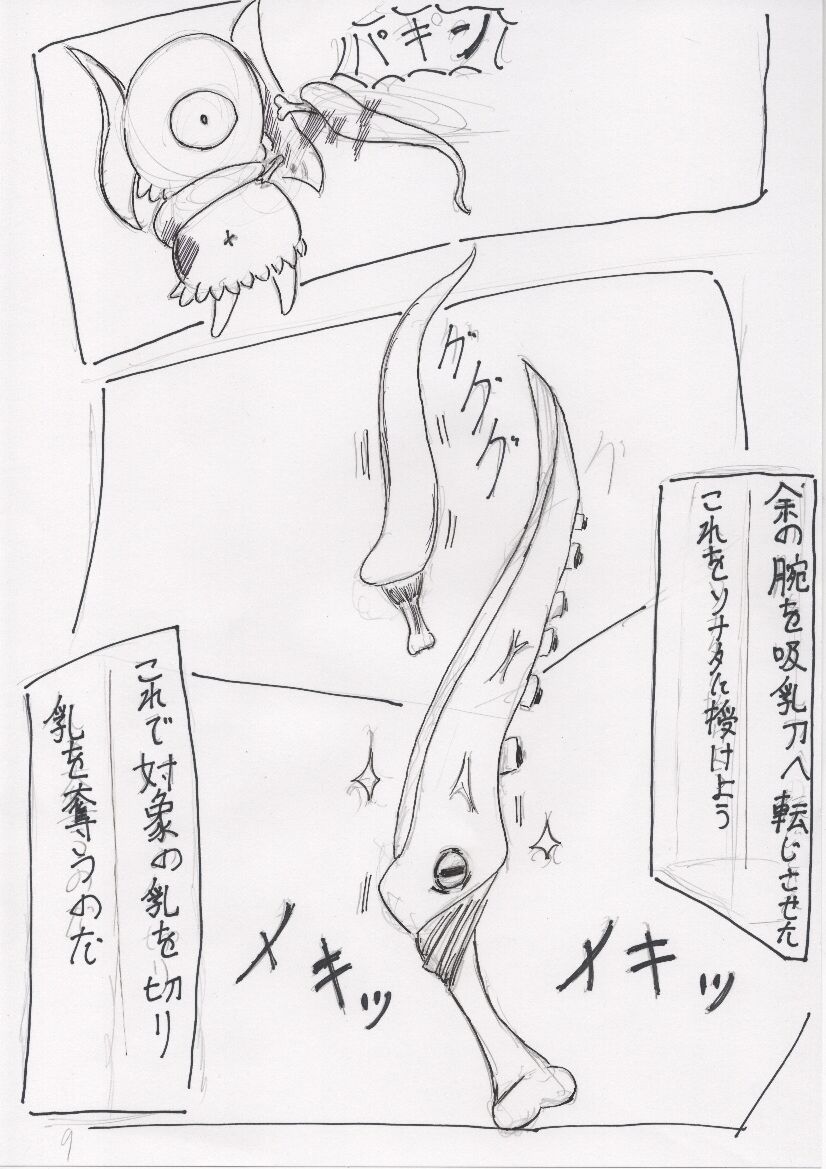 パキン
グググ
余の腕を吸乳刀へ転じさせた
これをソナタに授けよう
これで対象の乳を切り
乳を奪うのだ
メキッ
メキッ
9